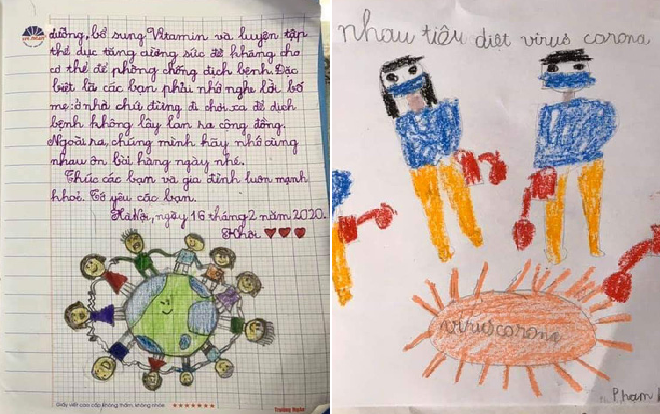 dưỡng, bổ sung Vitamin và luyện tập
thể dục tăng cường sức đề kháng cho
cơ thể để phòng chống dịch bệnh. Đặc
biệt là các bạn phải nhớ nghe lời bố
mẹ: ở nhà chứ đừng đi chơi xa để dịch
bệnh không lây lan ra cộng đồng.
Ngoài ra, chúng mình hãy nhớ cùng
nhau ôn bài hàng ngày nhé.
Chúc các bạn và gia đình luôn mạnh
khoẻ. Tớ yêu các bạn.
Hà Nội, ngày 16 tháng 2 năm 2020.
Giấy viết cao cấp không thấm, không nhòe
nhau tiêu diệt virus corona
virus corona
Phạm